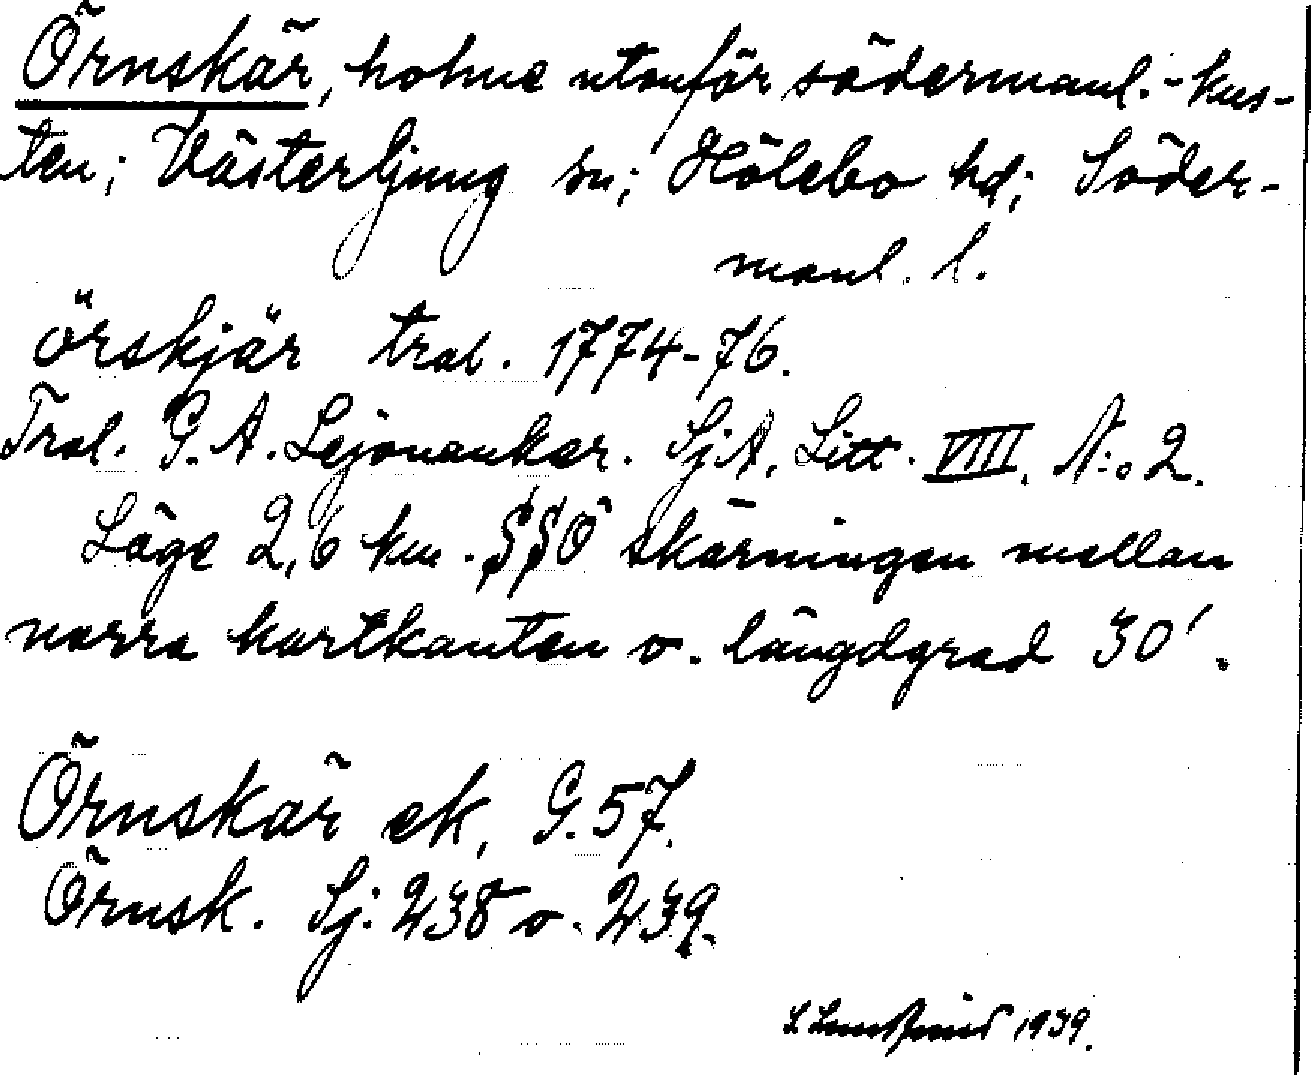 Örnskär, holme utanför södermanl.-kus-
ten; Västerljung sn; Hölebo hd; Söder-
manl. l.
örskjär trol. 1774-76.
Trol. G. A. Lejonankar. SjA, Litt. VIIII. N:o 2.
Läge 2,6 km. SSÖ skärningen mellan
norra kartkanten o. längdgrad 30'.
Örnskär ek, G. 57.
Örnsk. Sj: 238 o. 239.
1939.